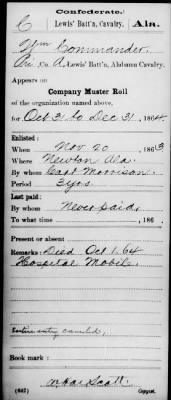 Confederate.
C Lewis' Batt'n, Cavalry. Ala.
Wm Commander
Pri Co. A, Lewis' Batt'n, Alabama Cavalry.
Appears on
Company Muster Roll
of the organization named above,
for Oct 31 to Dec 31, 1864.
Enlisted:
When Nov 20, 1863
Where Newton Ala.
By whom Capt Morrison
Period 3 yrs.
Last paid:
By whom Never paid,
To what time 186 .
Present or absent
Remarks: Died Oct 1. 64
Hospital Mobile.
Entire entry canceled.
Book mark:
Scott
(642) Copyist.